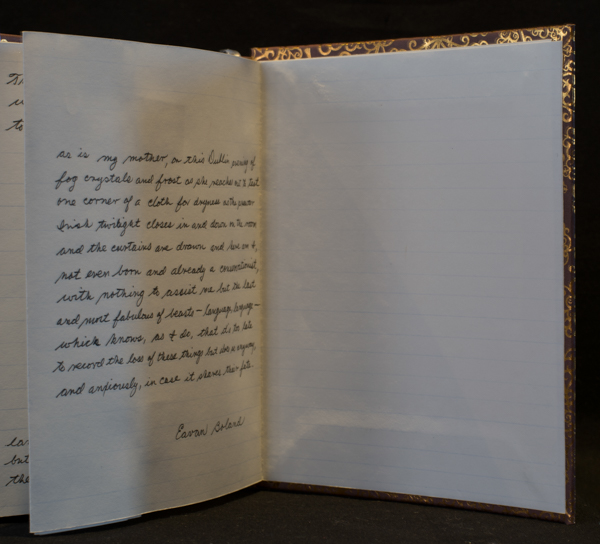 Th
to
as is my mother, on this Dublin evening of
fog crystals and frost as she reaches out to test
one corner of a cloth for dryness as the prewar
Irish twilight closes in and down on the room
and the curtains are drawn and here am I,
not even born and already a conservationist,
with nothing to assist me but the last
and most fabulous of beasts – language, language –
which knows, as I do, that it's too late
to record the loss of these things but does so anyway,
and anxiously, in case it shares their fate.
Eavan Boland
but
the